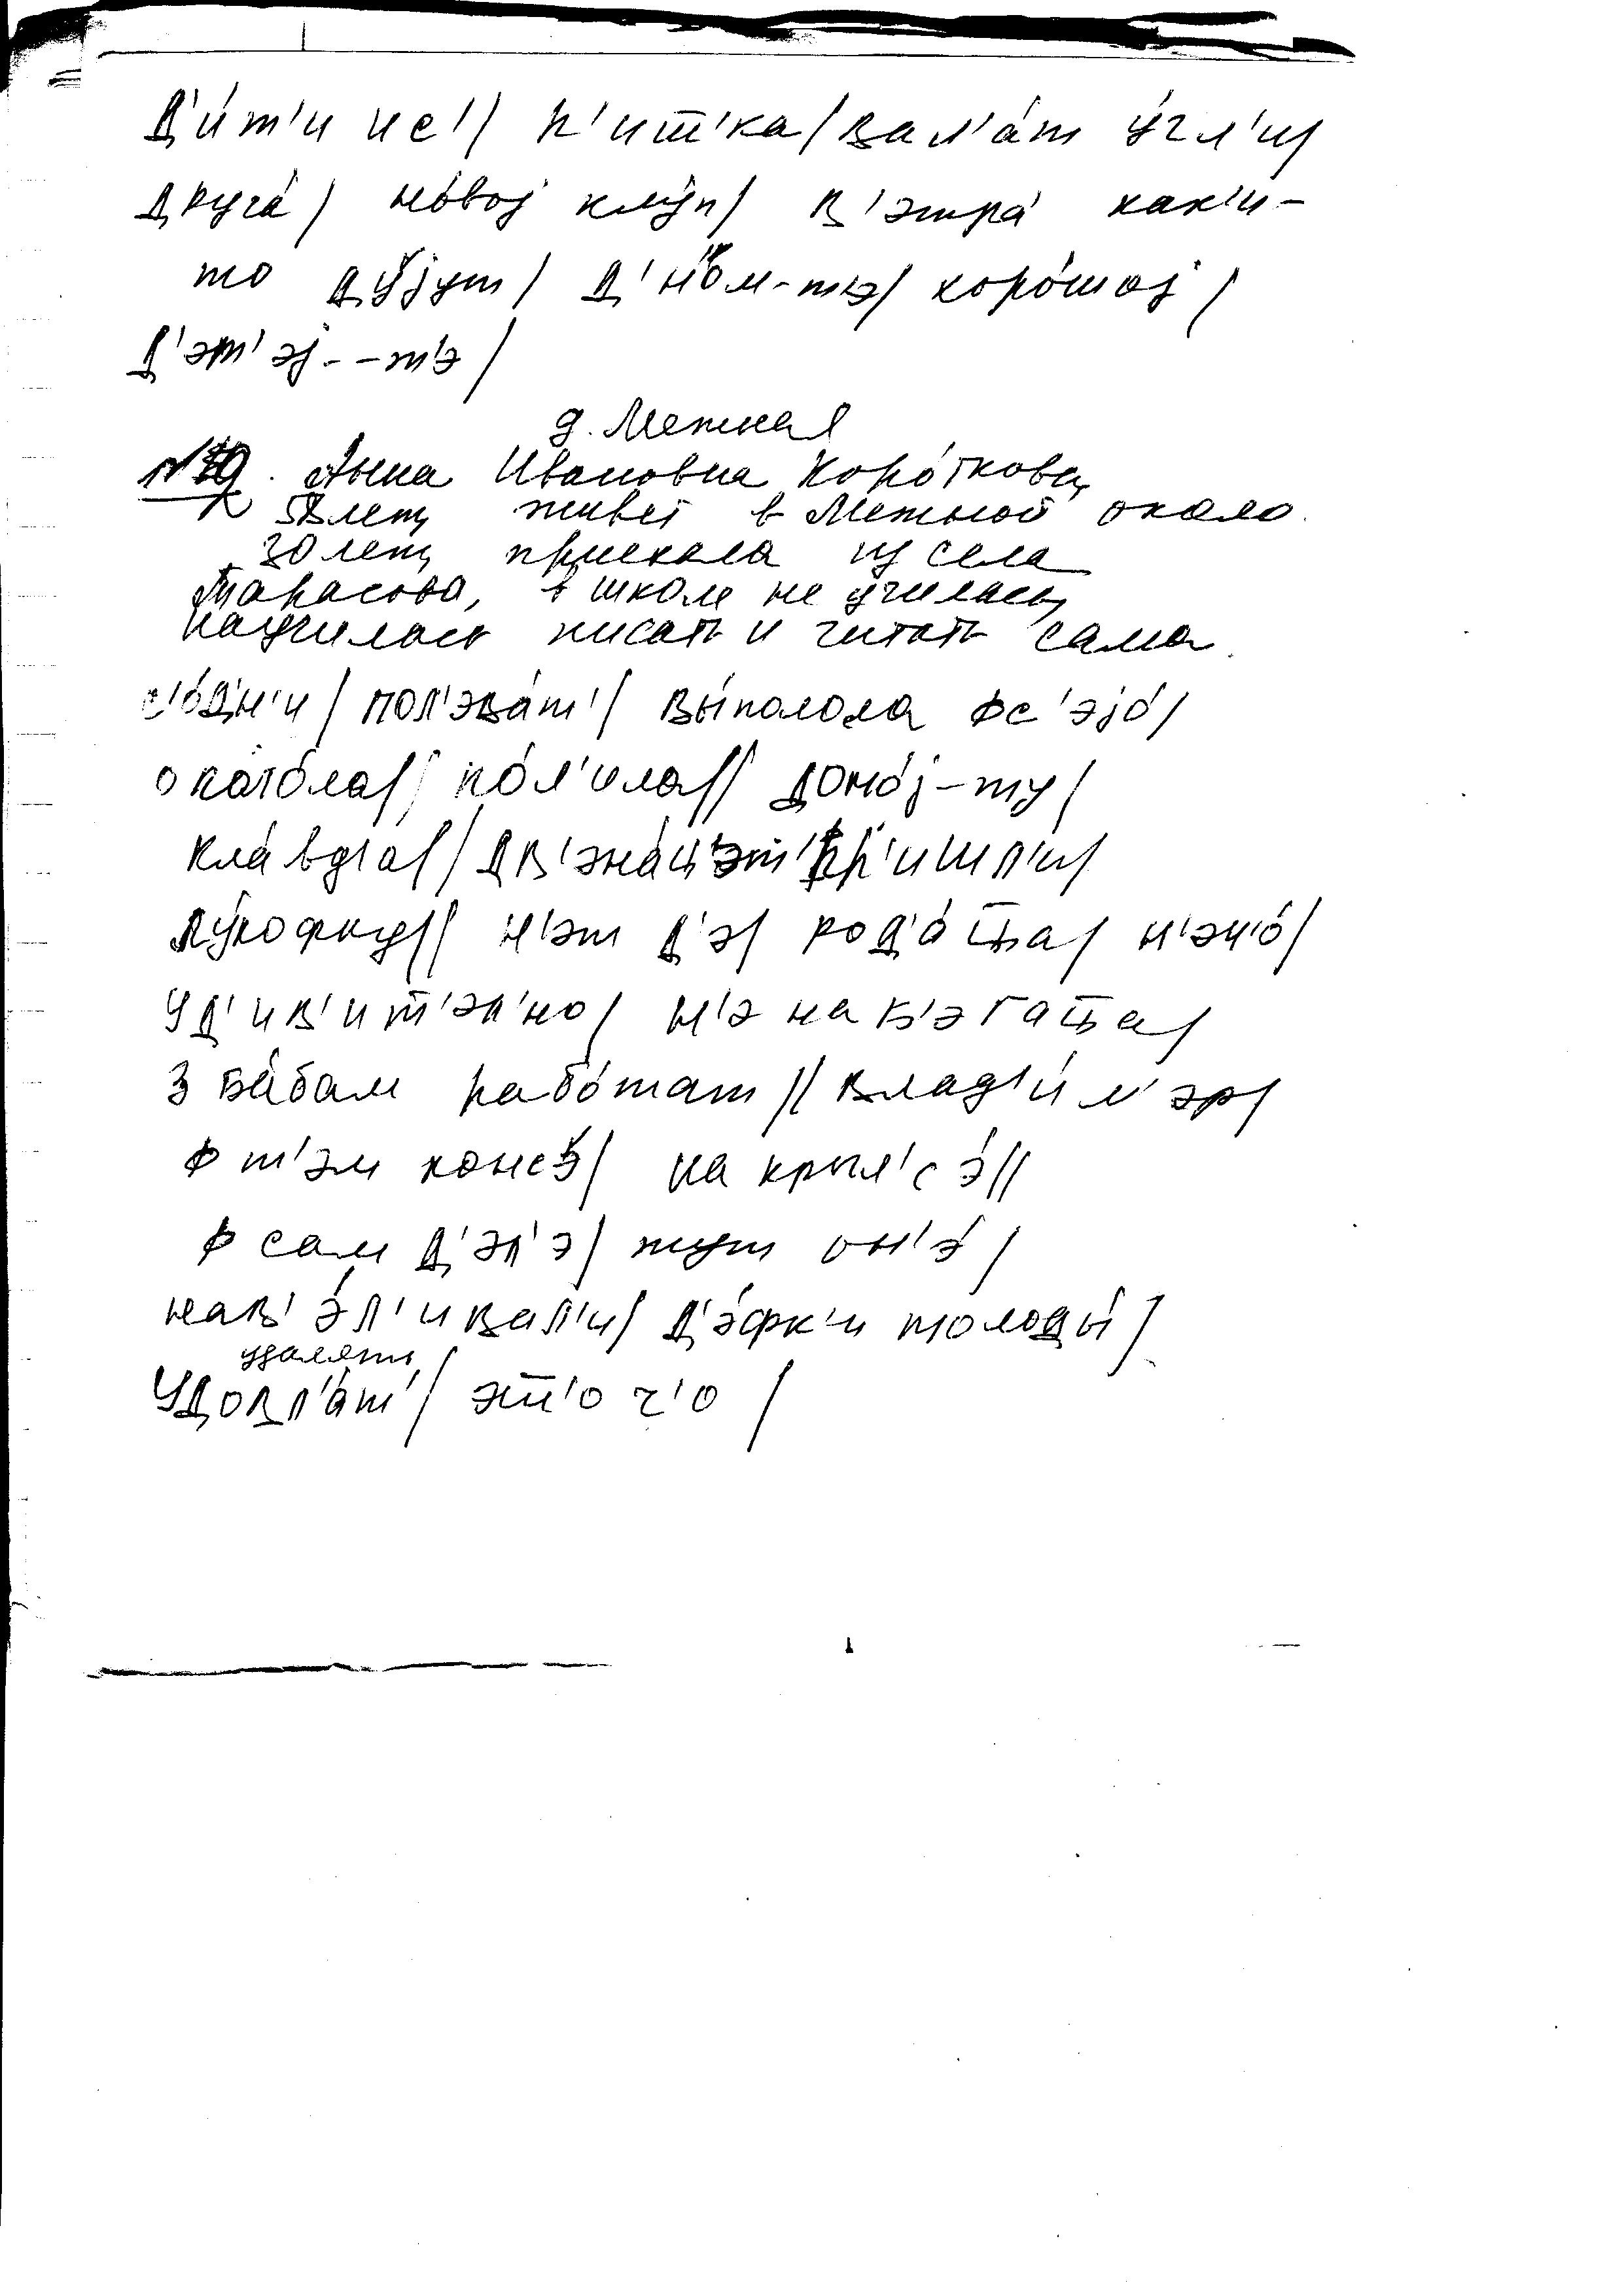 д'и́т'и ис'/ п'ит'ка/ вал'а́т у́гл'и/
друга́/ но́вој клуп/ в'этра́ как'и-
то ду́јут/ д'н'о́м-тэ/ хоро́шој/
д'эт'эј--т'э/
д. Межная
№ 9. Анна Ивановна Коро́ткова,
лет, живет в Межной около
30 лет, приехала из села
Тарасова, в школе не училась,
научилась писать и читать сама.
с'о́дн'и/ пол'эва́т'/ вы́полола фс'эјо́/
окато́ла// по́л'ила// домо́ј-ту/
кла́вд'іа// дв'эна́ц'эт' пр'ишл'и/
ну́рофку// н'эт д'э/ род'а́тца/ н'эч'о́/
уд'ив'ит'эл'но/ н'э наб'э́гатца/
з ба́бам рабо́тат// влад'и́м'эр/
ф т'эм консэ́/ на крыл'сэ́//
ф сам д'эл'э/ тут он'э́/
нав'э́л'ивал'и/ д'э́фк'и молоды́/
удалять
удовл'а́т'/ эт'о ч'о/